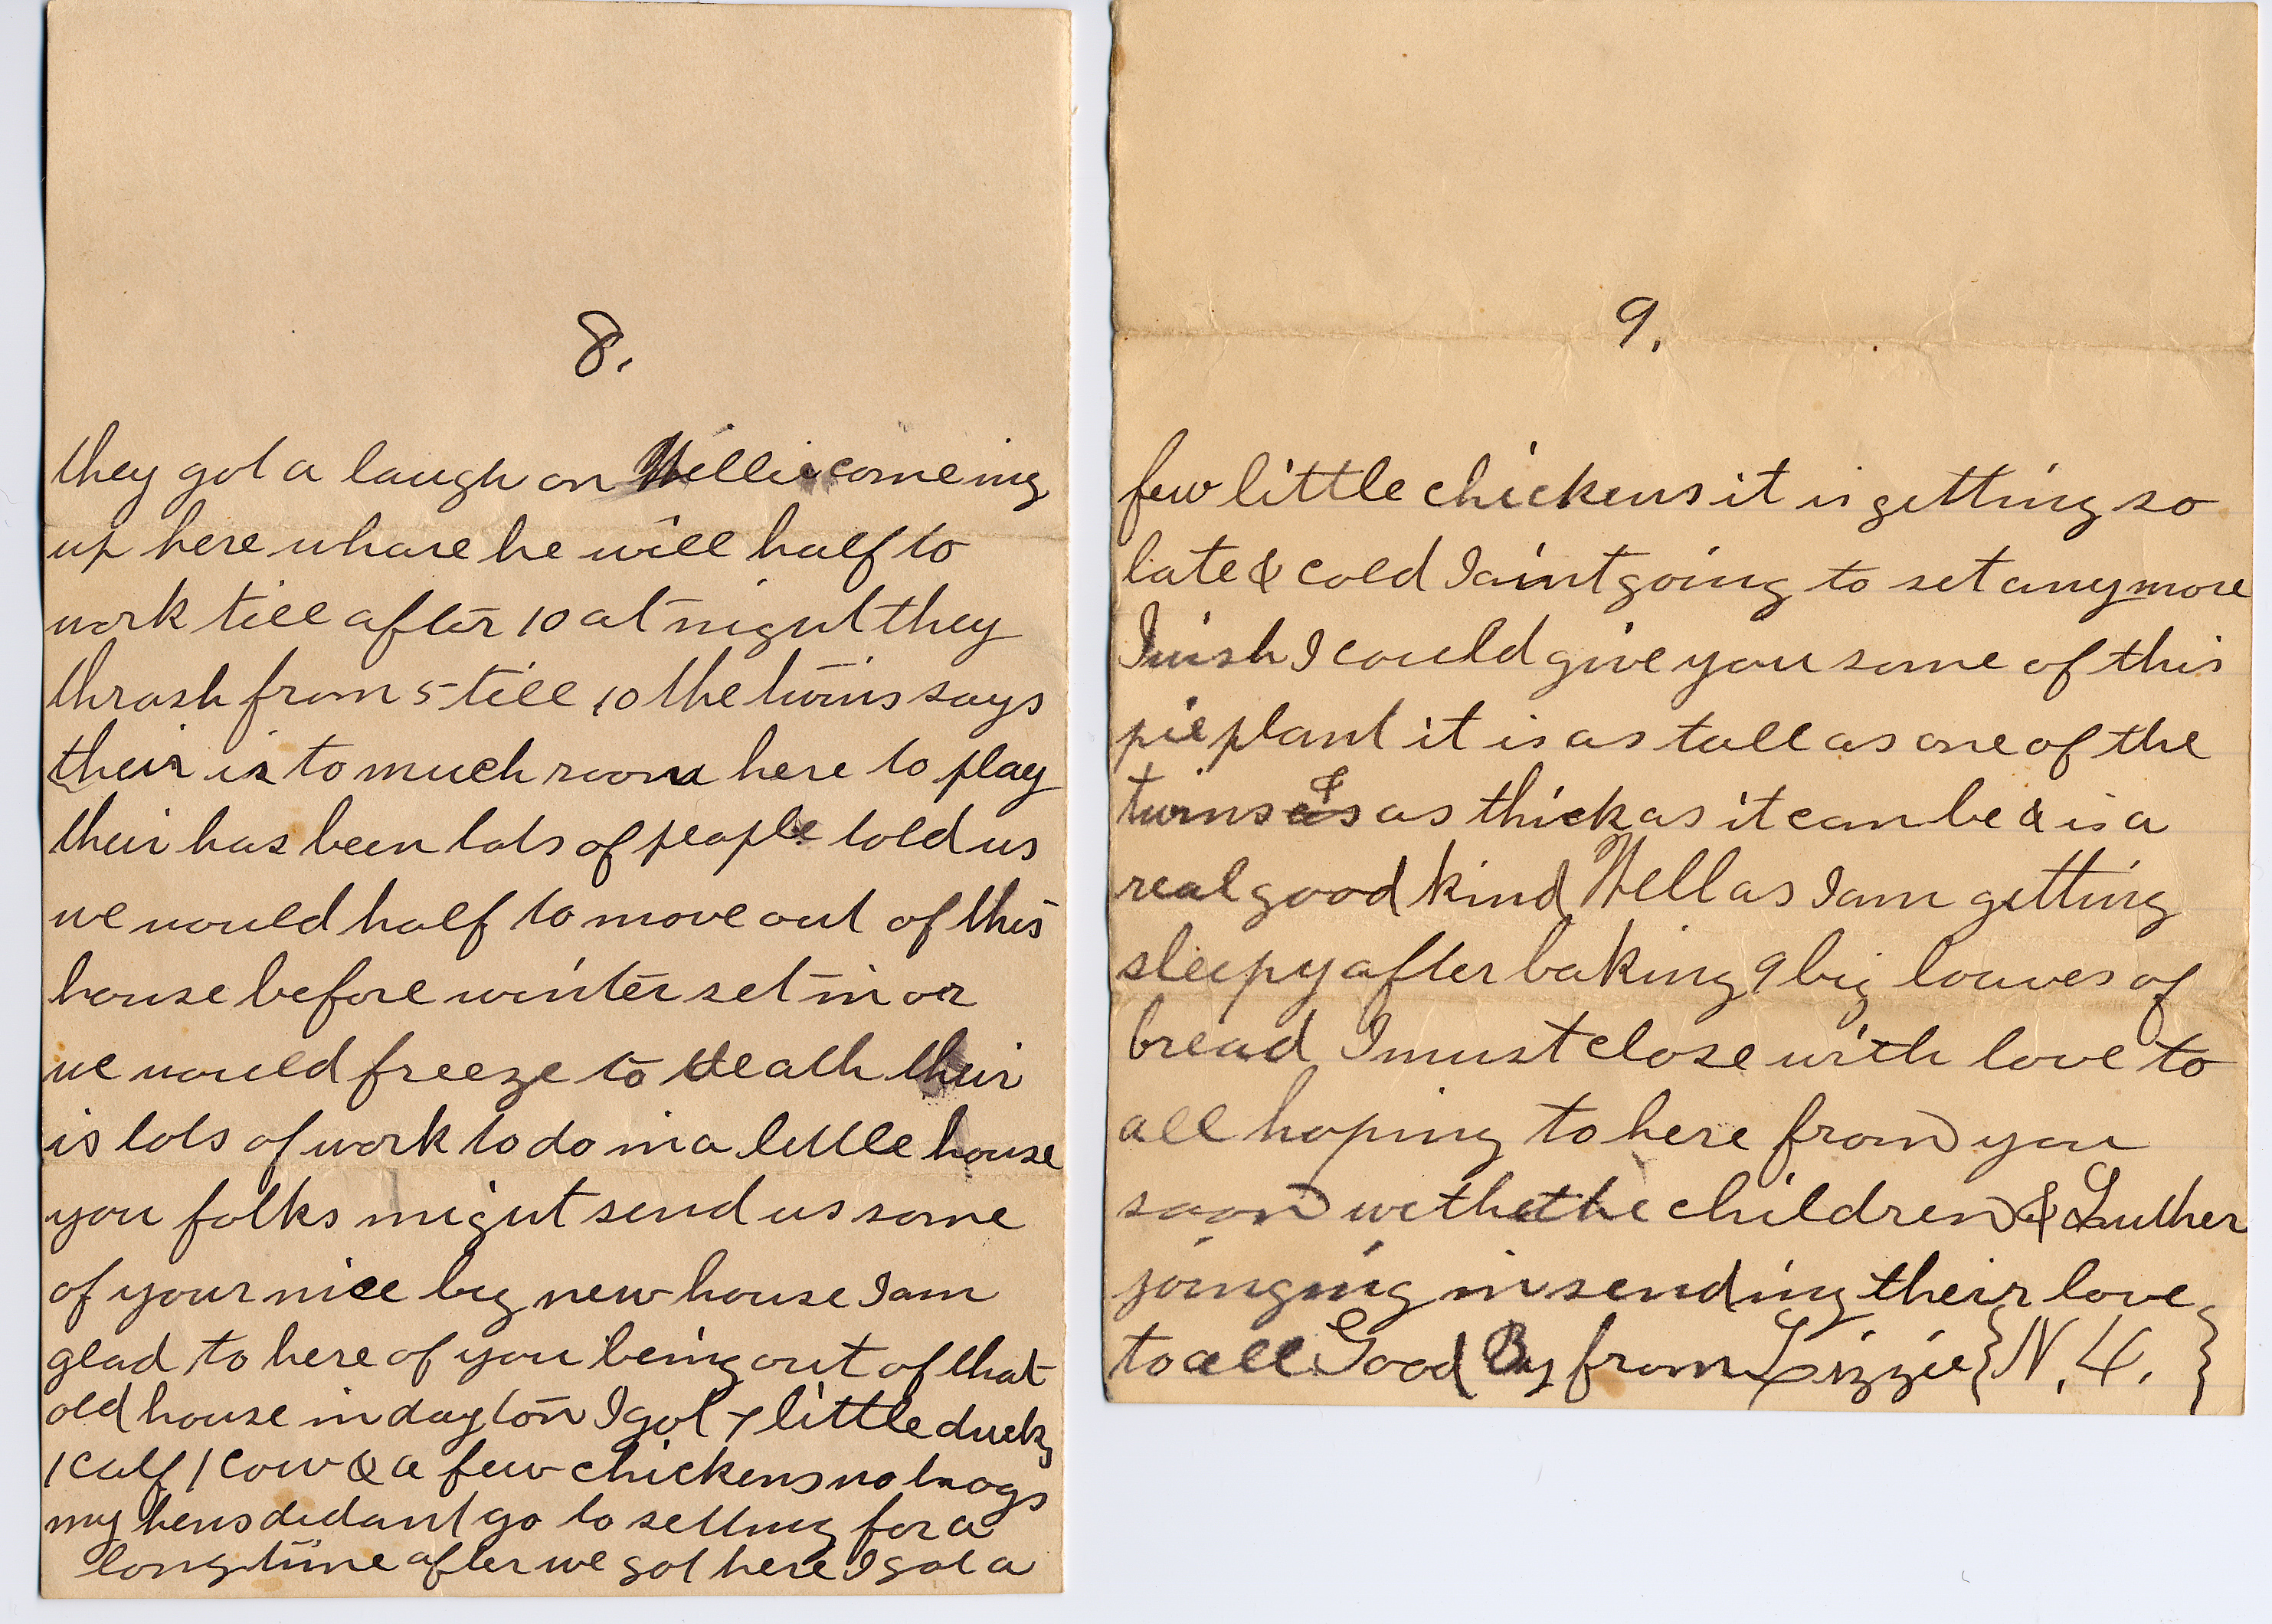 8.
they got a laugh on Willie comeing
up here whare he will half to
work till after 10 at night they
thrash from 5 till 10 the twins says
their is to much room here to play
their has been lots of people told us
we would half to move out of this
house before winter set in or
we would freeze to death their
is lots of work to do in a little house
you folks might send us some
of your nice big new house I am
glad to here of you being out of that
old house in dayton I got 7 little ducks
1 calf 1 cow & a few chickens no hogs
my hens didant go to setting for a
long time after we got here I got a
9.
few little chickens it is getting so
late & cold I aint going to set any more
I wish I could give you some of this
pie plant it is as tall as one of the
twins & as thick as it can be & is a
real good kind Well as I am getting
sleepy after baking 9 big loaves of
bread I must close with love to
all hoping to here from you
soon with the children & Luther
joinging in sending their love
to all Good By from Lizzie {N. L.}